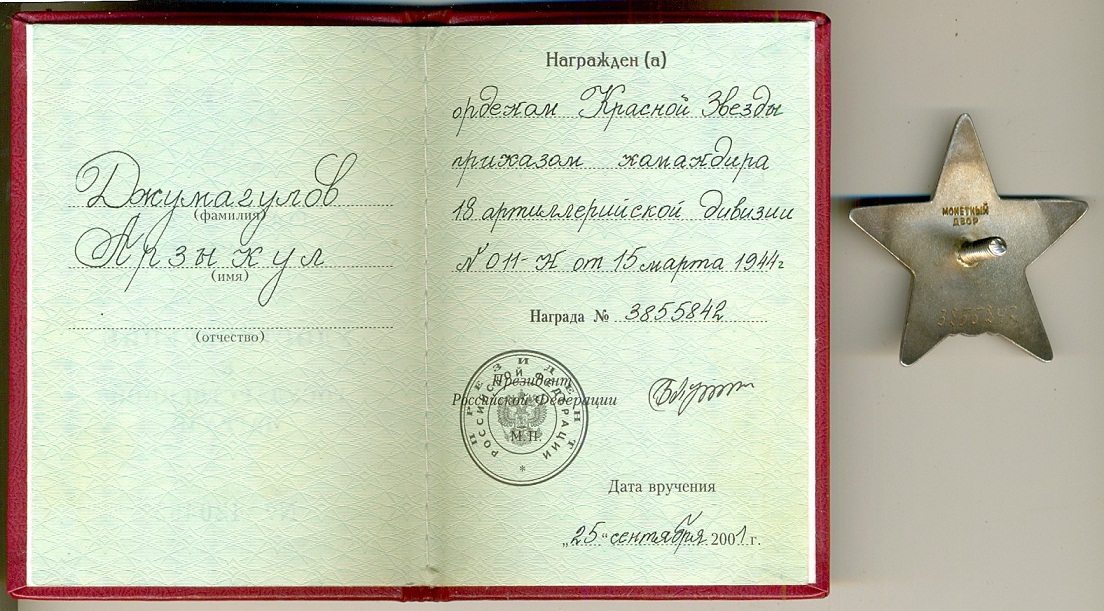 Джумагулов
(фамилия)
Арзыкул
(имя)
(отчество)
Награжден (а)
орденом Красной Звезды
приказом командира
18 артиллерийской дивизии
№ 011-Н от 15 марта 1944г
Награда № 3855842
Президент
Российской Федерации
М.П.
ПРЕЗИДЕНТ
РОССИЙСКОЙ ФЕДЕРАЦИИ
*
Дата вручения
„25“ сентября 2001 г.
МОНЕТНЫЙ
ДВОР
3855842